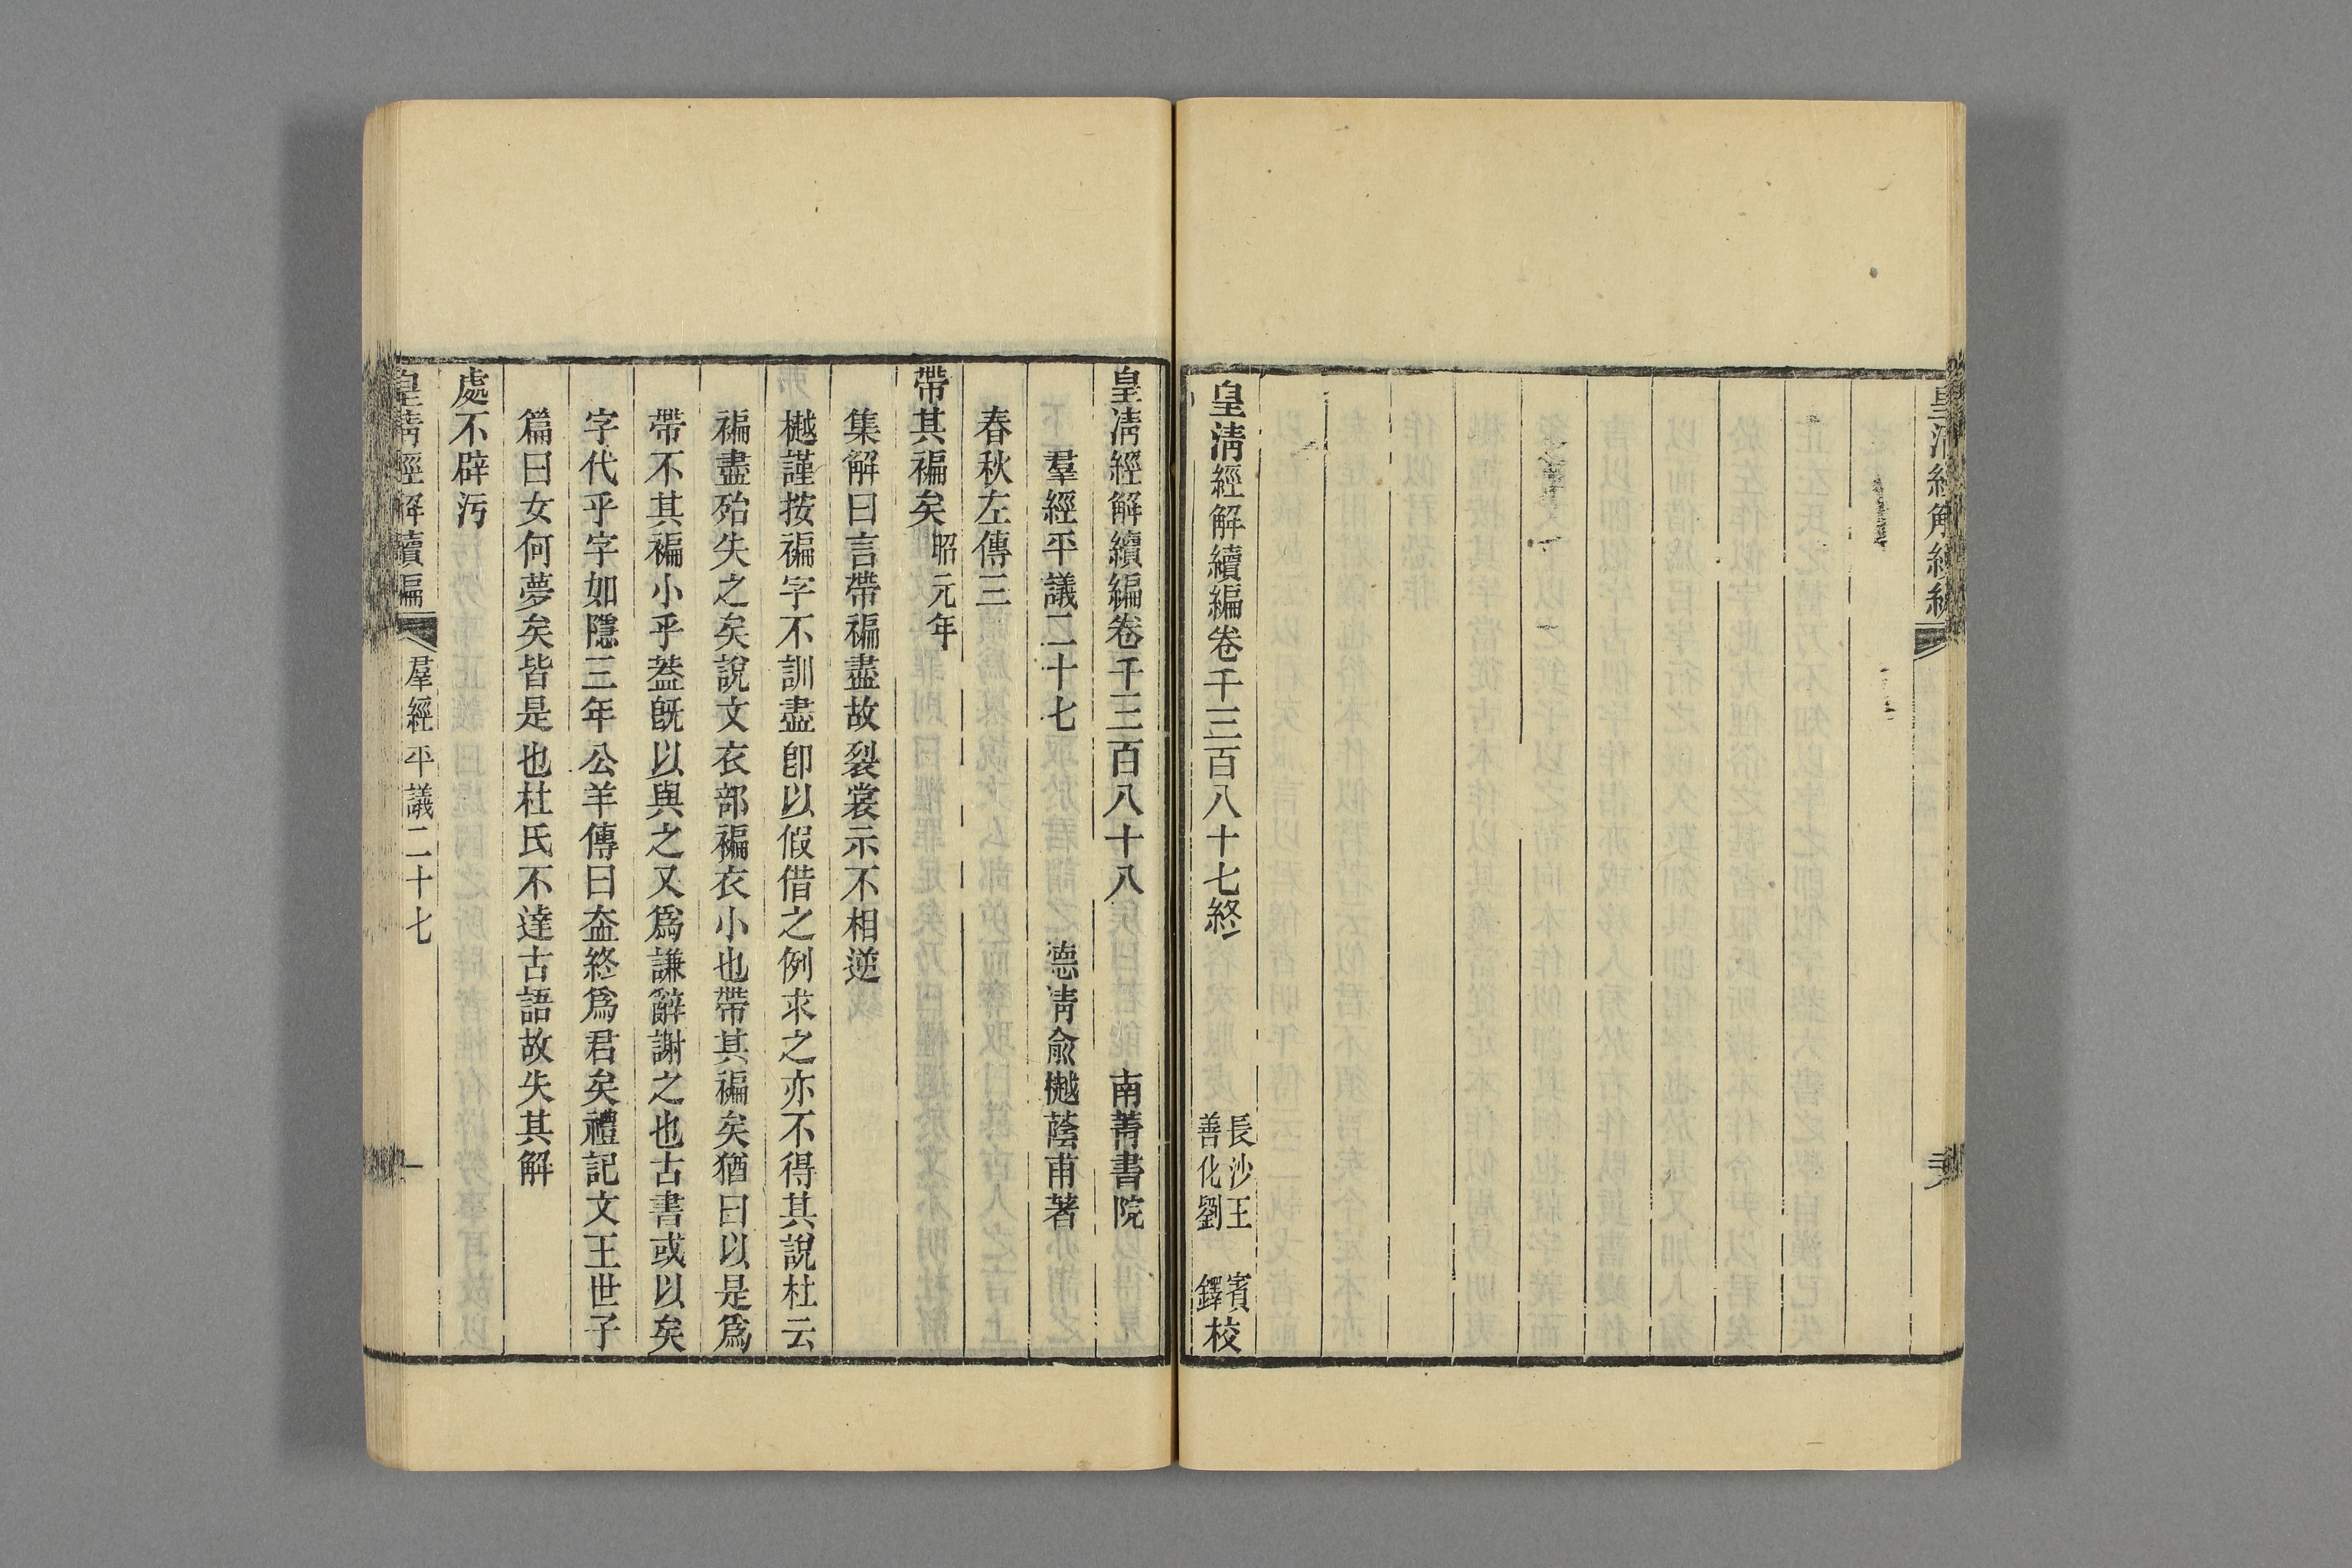 皇清經解續編卷千三百八十七終
長沙王 賓
善化劉 鐸
校
皇清經解續編卷千三百八十八 南菁書院
羣經平議二十七 德清俞樾蔭甫著
春秋左傳三
帶其褊矣 昭元年
集解曰言帶褊盡故裂裳示不相逆
樾謹按褊字不訓盡卽以假借之例求之亦不得其說杜云
褊盡殆失之矣說文衣部褊衣小也帶其褊矣猶曰以是爲
帶不其褊小乎葢旣以與之又爲謙辭謝之也古書或以矣
字代乎字如隱三年公羊傳曰盍終爲君矣禮記文王世子
篇曰女何夢矣皆是也杜氏不達古語故失其解
處不辟污
皇清經解續編 羣經平議二十七 一